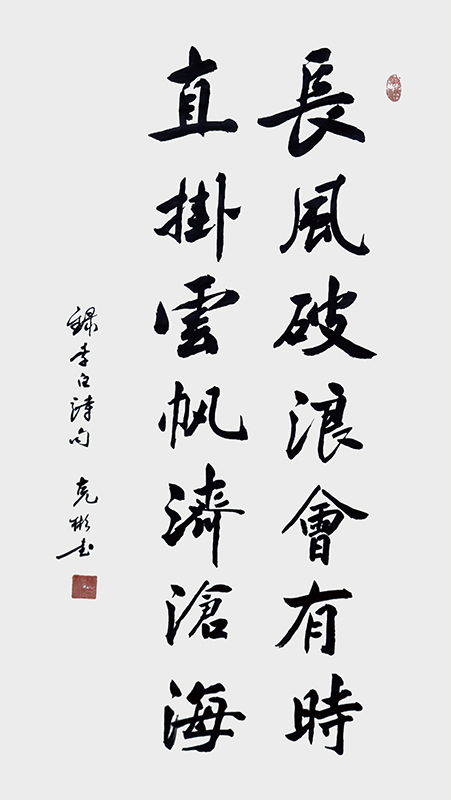 長風破浪會有時
直掛雲帆濟滄海
錄李白詩句 克彬书